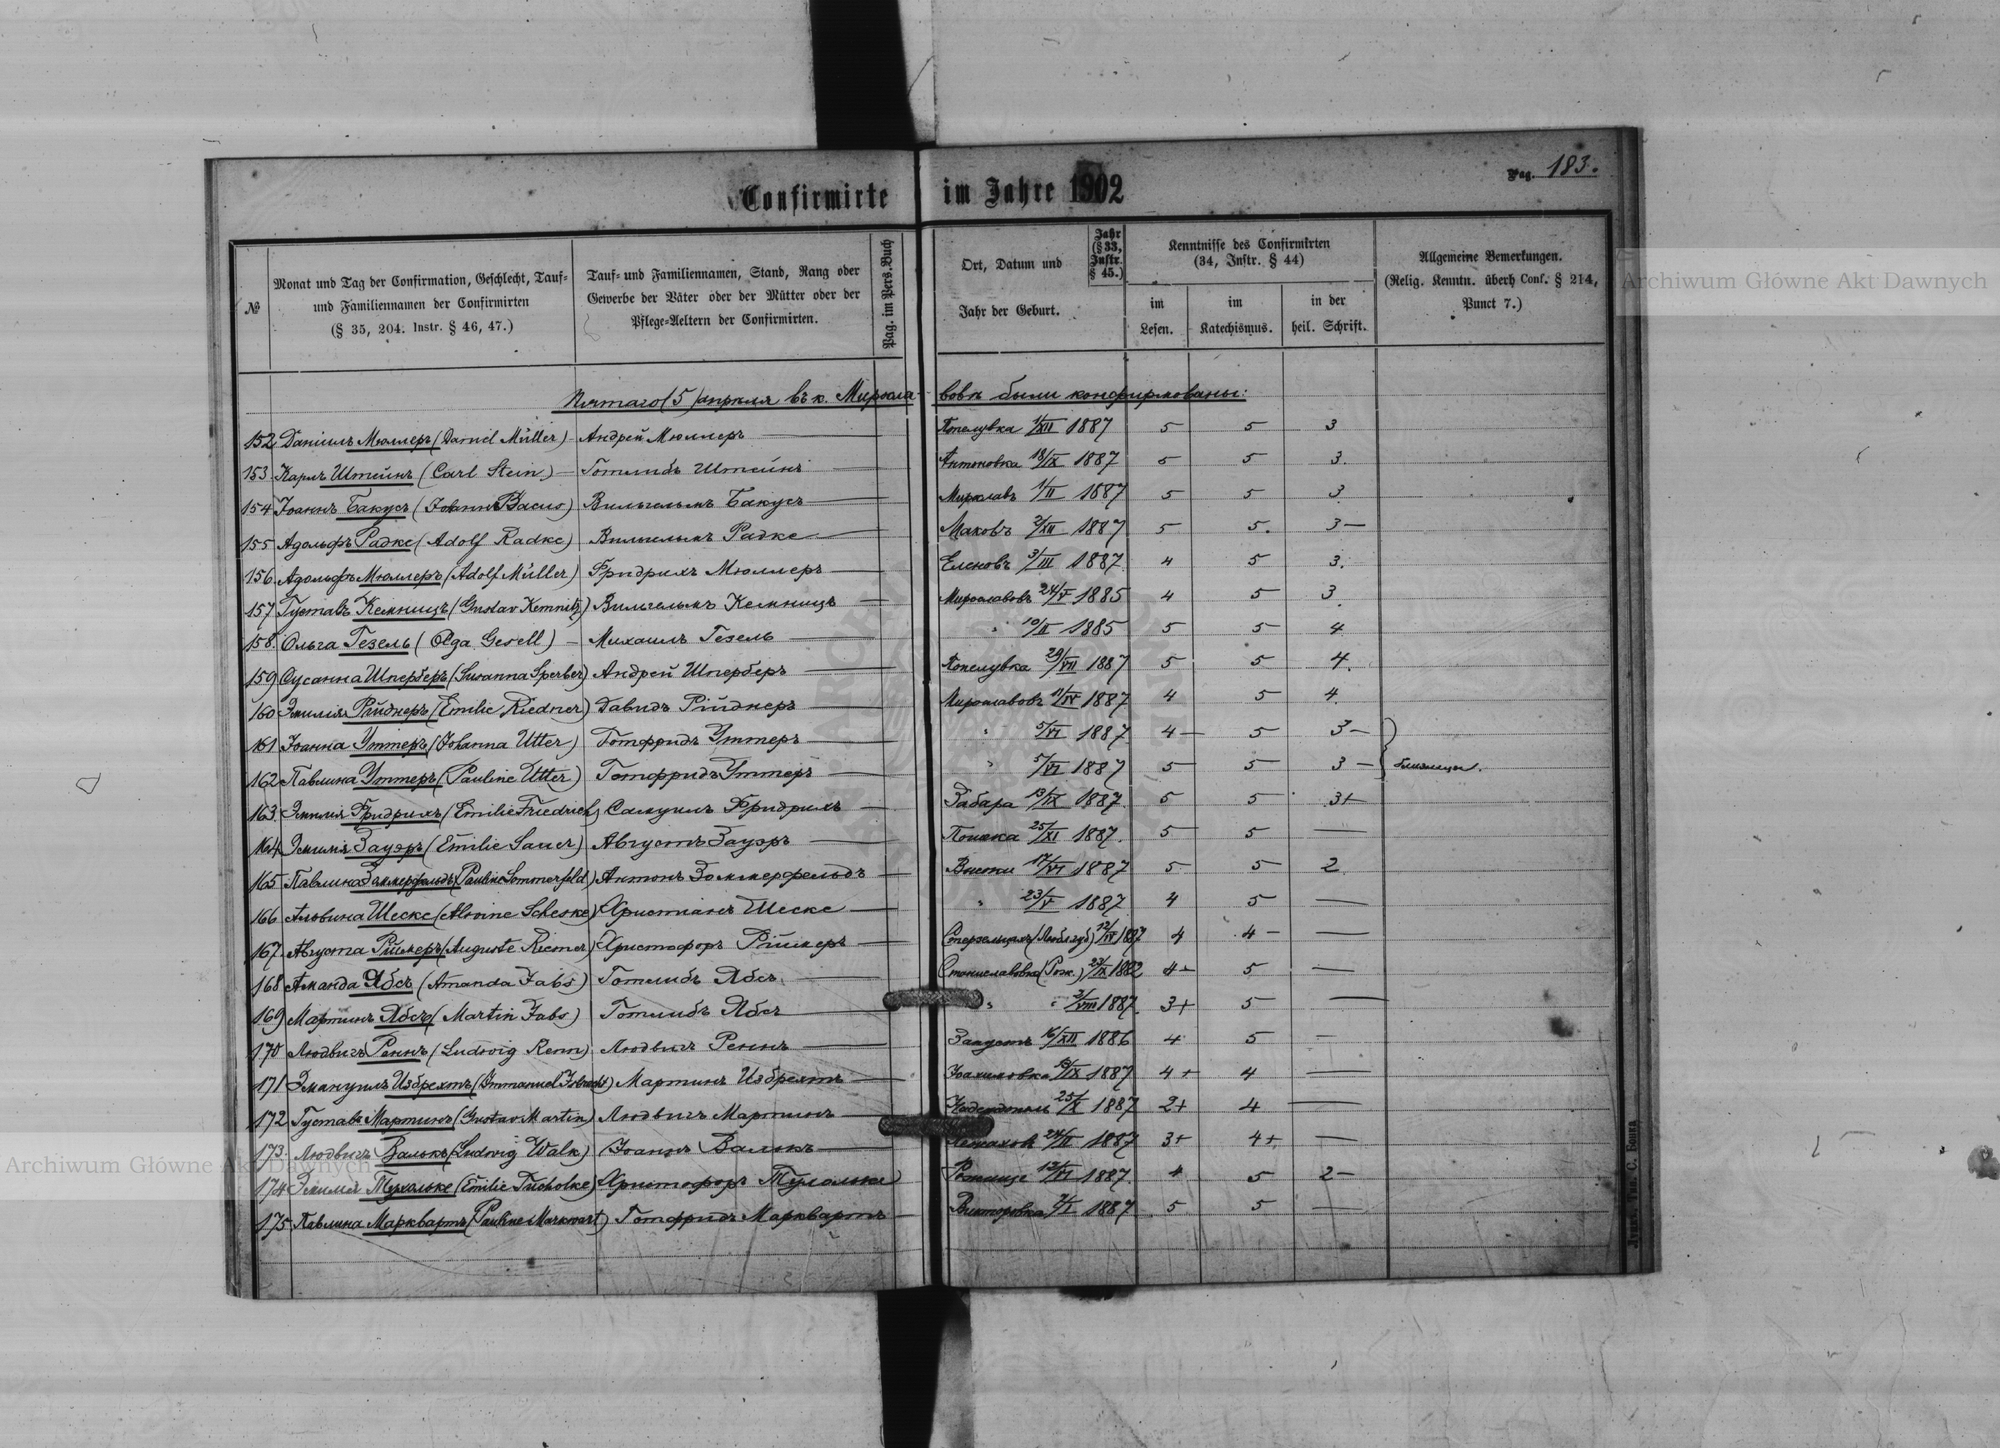 Confirmirte im Jahre 1902
Pag. 183.
№
Monat und Tag der Confirmation, Geschlecht, Tauf-
und Familiennamen der Confirmirten
(§ 35, 204. Instr. § 46, 47.)
Tauf- und Familiennamen, Stand, Rang oder
Gewerbe der Väter oder der Mütter oder der
Pflege-Aeltern der Confirmirten.
Pag. im Pers.-Buch
Ort, Datum und
Jahr der Geburt.
Jahr
(§ 33,
Instr.
§ 45.)
Kenntnisse des Confirmirten
(34, Instr. § 44)
im
Lesen.
im
Katechismus.
in der
heil. Schrift.
Allgemeine Bemerkungen.
(Relig. Kenntn. überh Conf. § 214,
Punct 7.)
Пятаго (5) апрѣля въ к. Мирославовѣ были конфирмованы:
152 Даніилъ Мюллеръ (Daniel Müller) – Андрей Мюллеръ Копелувка 1/XII 1887 5 5 3
153. Карлъ Штейнъ (Carl Stein) – Готлибъ Штейнъ Антоновка 18/IX 1887 5 5 3.
154 Іоаннъ Бакусъ (Johann Bacus) Вильгельмъ Бакусъ 1/II 1887 5 5 3
155 Адольфъ Радке (Adolf Radke) Вильгельмъ Радке Маковъ 2/XII 1887 5 5. 3 –
156 Адольфъ Мюллеръ (Adolf Müller) Фридрихъ Мюллеръ Еленовъ 3/III 1887 4 5 3.
157 Густавъ Кемницъ (Gustav Kemnitz) Вильгельмъ Кемницъ Мирославовъ 24/V 1885 4 5 3
158. Ольга Гезель (Olga Gesell) – Михаилъ Гезель " 10/II 1885 5 5 4
159 Сусанна Шперберъ (Susanna Sperber) Андрей Шперберъ Копелувка 29/VII 1887 5 5 4.
160 Эмилія Ридднеръ (Emilie Riedner) Давидъ Ридднеръ Мирославовъ 11/IV 1887 4 5 4.
161 Іоанна Уттеръ (Johanna Utter) Готфридъ Уттеръ " 5/VI 1887 4 – 5 3 –
162 Павлина Уттеръ (Pauline Utter) Готфридъ Уттеръ " 5/VI 1887 5 5 3 – близнецы.
163. Эмилія Фридрихъ (Emilie Friedrich) Самуилъ Фридрихъ Забара 13/IX 1887 5 5 3+
164 Эмилія Зауэръ (Emilie Sauer) Августъ Зауэръ 25/XI 1887. 5 5 —
165 Павлина Зоммерфельдъ (Pauline Sommerfeld) Антонъ Зоммерфельдъ 17/VI 1887 5 5 2
166 Альвина Шеске (Alwine Scheske) Христіанъ Шеске " 23/V 1887 4 5 —
167. Августа Римеръ (Auguste Riemer) Христофоръ Римеръ 12/IV 1887 4 4 – —
168 Аманда Ябсъ (Amanda Jabs) Готлибъ Ябсъ Станиславовка (Рож.) 23/IX 1882 4 – 5 —
169 Мартинъ Ябсъ (Martin Jabs) Готлибъ Ябсъ " " 3/VIII 1887 3+ 5 —
170 Людвигъ Реннъ (Ludwig Renn) Людвигъ Реннъ Запустъ 16/XII 1886 4 5 —
171 Эмануилъ Избрехтъ (Immanuel Isbrecht) Мартинъ Избрехтъ 1887 4 + 4 —
172 Густавъ Мартинъ (Gustav Martin) Людвигъ Мартинъ 25/X 1887 2+ 4 —
173. Людвигъ Валькъ (Ludwig Walk) Іоаннъ Валькъ 24/II 1887 3+ 4+ —
174 Эмилія Тухольке (Emilie Tucholke) Христофоръ Тухольке Рожище 12/VI 1887 4 5 2 –
175 Павлина Марквартъ (Pauline Markwart) Готфридъ Марквартъ Викторовка 1887 5 5 —
Archiwum Główne Akt Dawnych
Archiwum Główne Akt Dawnych